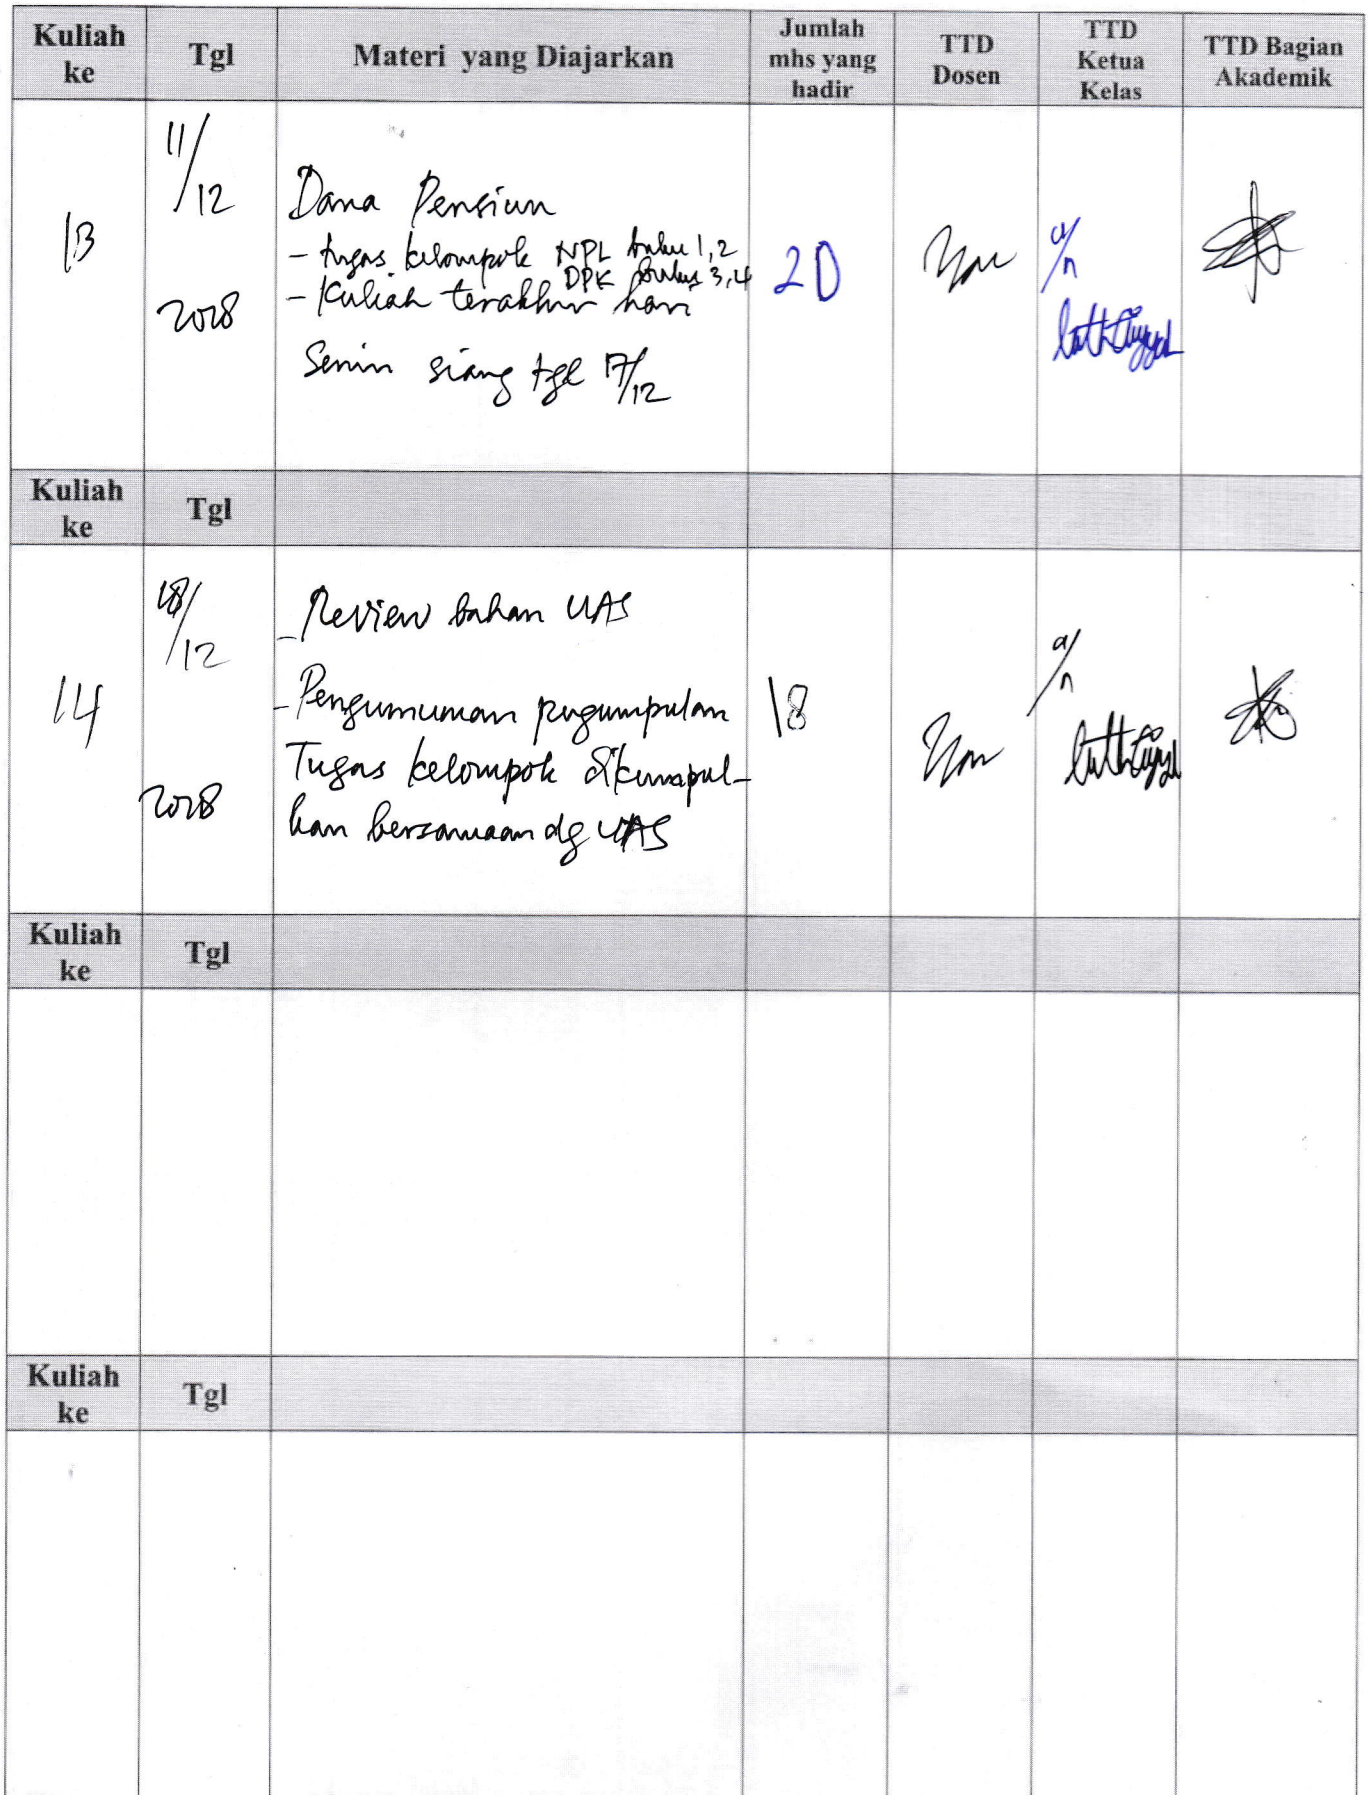 Kuliah ke
Tgl
Materi yang Diajarkan
Jumlah mhs yang hadir
TTD Dosen
TTD Ketua Kelas
TTD Bagian Akademik
13
11/12
2018
Dana Pensiun
- tugas kelompok NPL buku 1,2
DPK buku 3,4
- Kuliah terakhir hari
Senin siang tgl 17/12
20
a/n
Kuliah ke
Tgl
14
18/12
2018
- Review bahan UAS
- Pengumuman pengumpulan
Tugas kelompok dikumpul-
kan bersamaan dg UAS
18
a/n
Kuliah ke
Tgl
Kuliah ke
Tgl